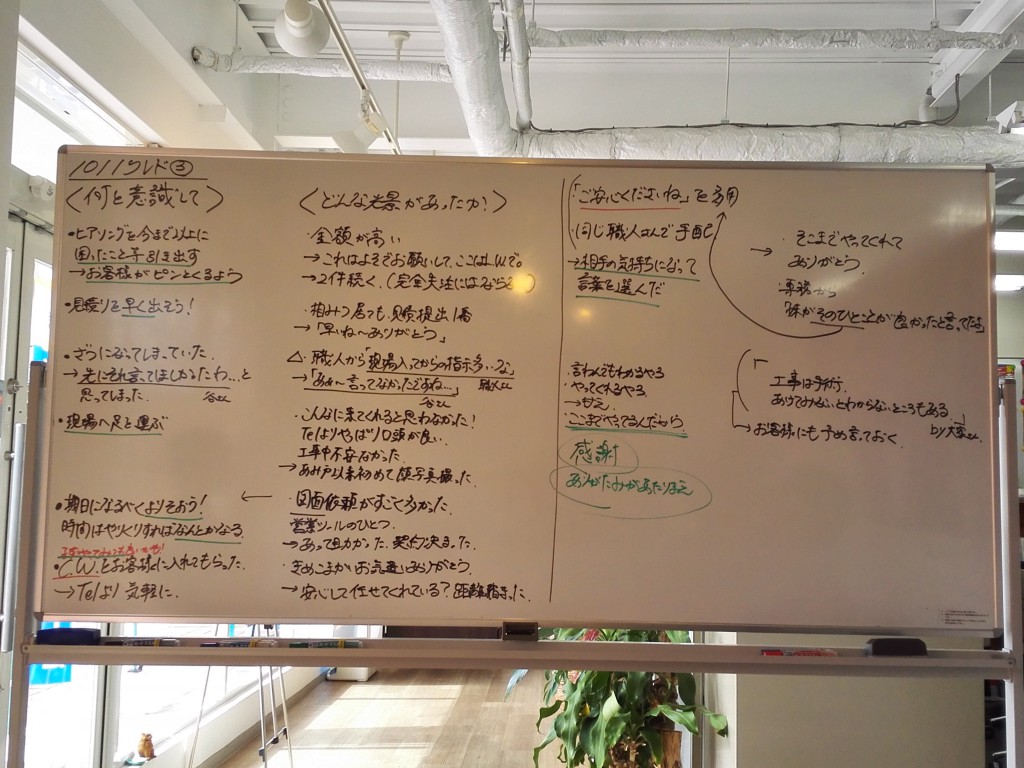 1011クレド③
〈何を意識して〉
・ヒアリングを今まで以上に
困ったことを引き出す
→お客様がピンとくるよう
・見積りを早く出そう!
・ざつになってしまっていた。
→先にそれ言てほしかったわ…と
思ってしまった。
谷さん
・現場へ足を運ぶ
・期日になるべくよりそう!
時間はやりくりすればなんとかなる
・C.W.をお客様に入れてもらった。
→Telより気軽に。
〈どんな光景があったか!〉
・金額が高い
→これはよそでお願いして、ここはL.Wで。
→2件続く。(完全失注には
・相みつ居ても、見積提出1番
→「早いね〜ありがとう」
△・職人から現場入ってからの指示多いな
職人さん
→「あぁ〜言ってなかったですね…」
谷さん
・こんなに来てくれると思わなかった!
Telよりやっぱり口頭が良い。
工事中不安なかった。
→あみ戸以来初めて顔写真撮った。
・図面依頼がすごく多かった。
営業ツールのひとつ。
→あって助かった。契約決まった。
・きめこまかいお気遣いありがとう。
→安心して任せてくれている?距離縮まった。
・「ご安心くださいね」を多用
・同じ職人さんで手配
→相手の気持ちになって
言葉を選んだ
→ ・そこまでやってくれて
ありがとう。
・専務から
「妹がそのひとことが良かったと言ってたよ」
・言わんでもわかるやろ
・やってくれるやろ
→甘え
・ここまでやってるんだから
感謝
ありがたみがあたりまえ
「
工事は予定。
あけてみないとわからないところもある。」
by 大家さん
→お客様にも予め言っておく